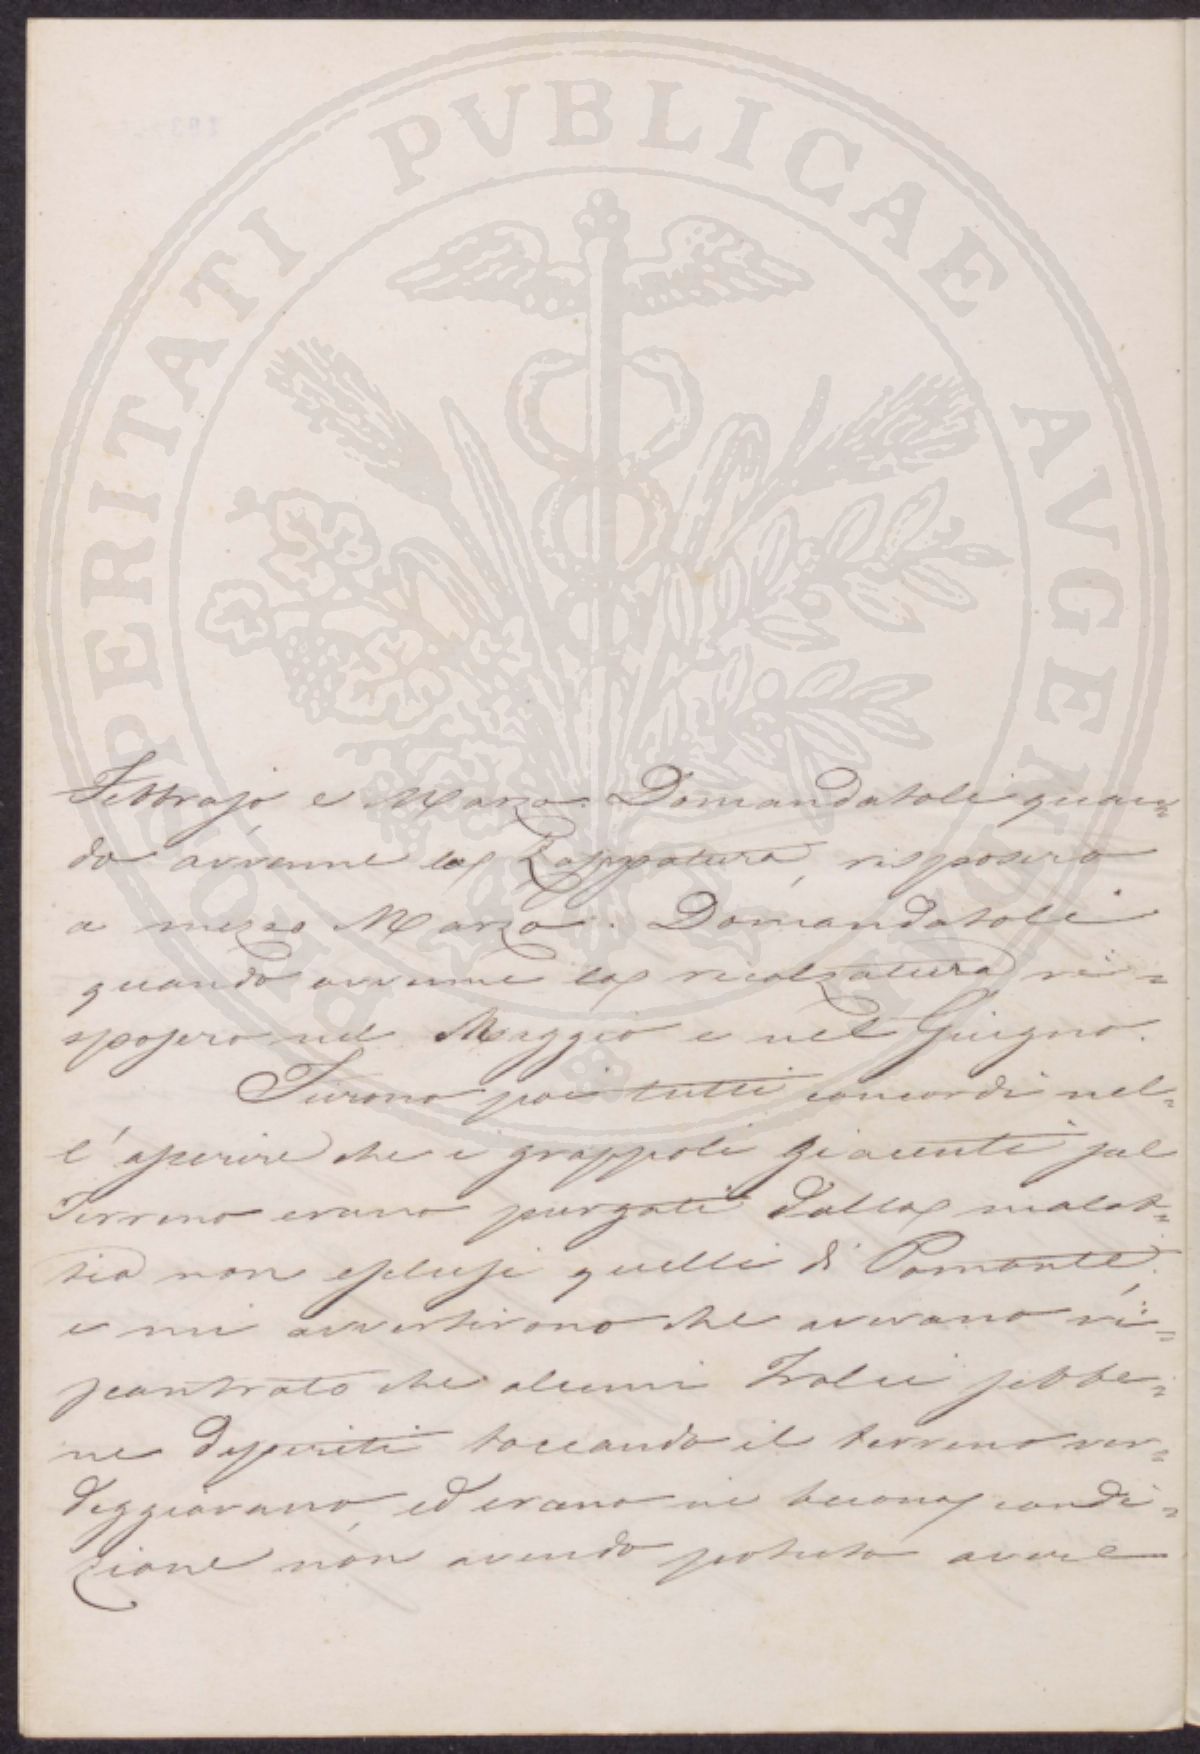 PROSPERITATI PVBLICAE AVGENDAE
Febbrajo e Marzo. Domandatoli quan=
do avvenne la Zappatura, risposero
a mezzo Marzo. Domandatoli
quando avvenne la rincalzatura ri=
sposero nel Maggio e nel Giugno.
Furono poi tutti concordi nel=
l'asserire che i grappoli giacenti sul
Terreno erano purgati dalla malat=
tia non esclusi quelli di Pomonte,
e mi avvertirono che avevano ri=
scontrato che alcuni Tralci sebbe=
ne deperiti toccando il terreno ver=
deggiavano, ed erano in buona condi=
zione non avendo potuto avere